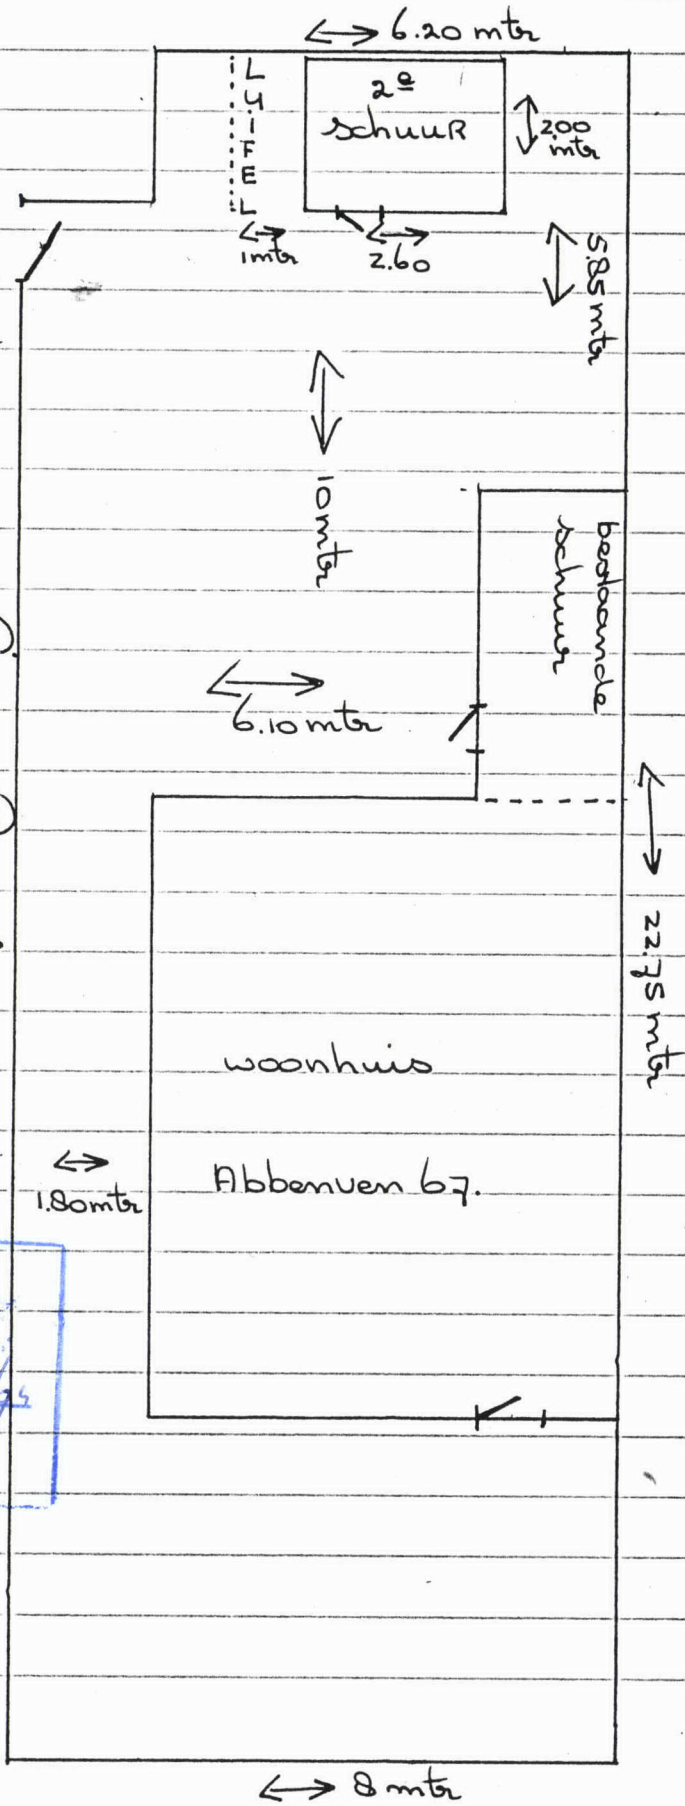 6.20 mtr
LUIFEL
2e
schuur
2.00
mtr
1mtr
2.60
5.85 mtr
10 mtr
bestaande
schuur
6.10 mtr
22.75 mtr
woonhuis
Abbenven 67.
1.80 mtr
8 mtr